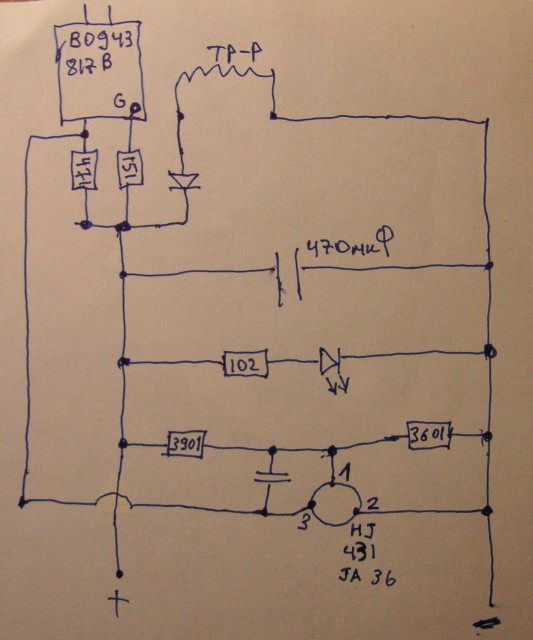 B0943
817B
G
TP-P
471
151
470мкФ
102
3901
3601
1
3
2
HJ
431
JA 36
+